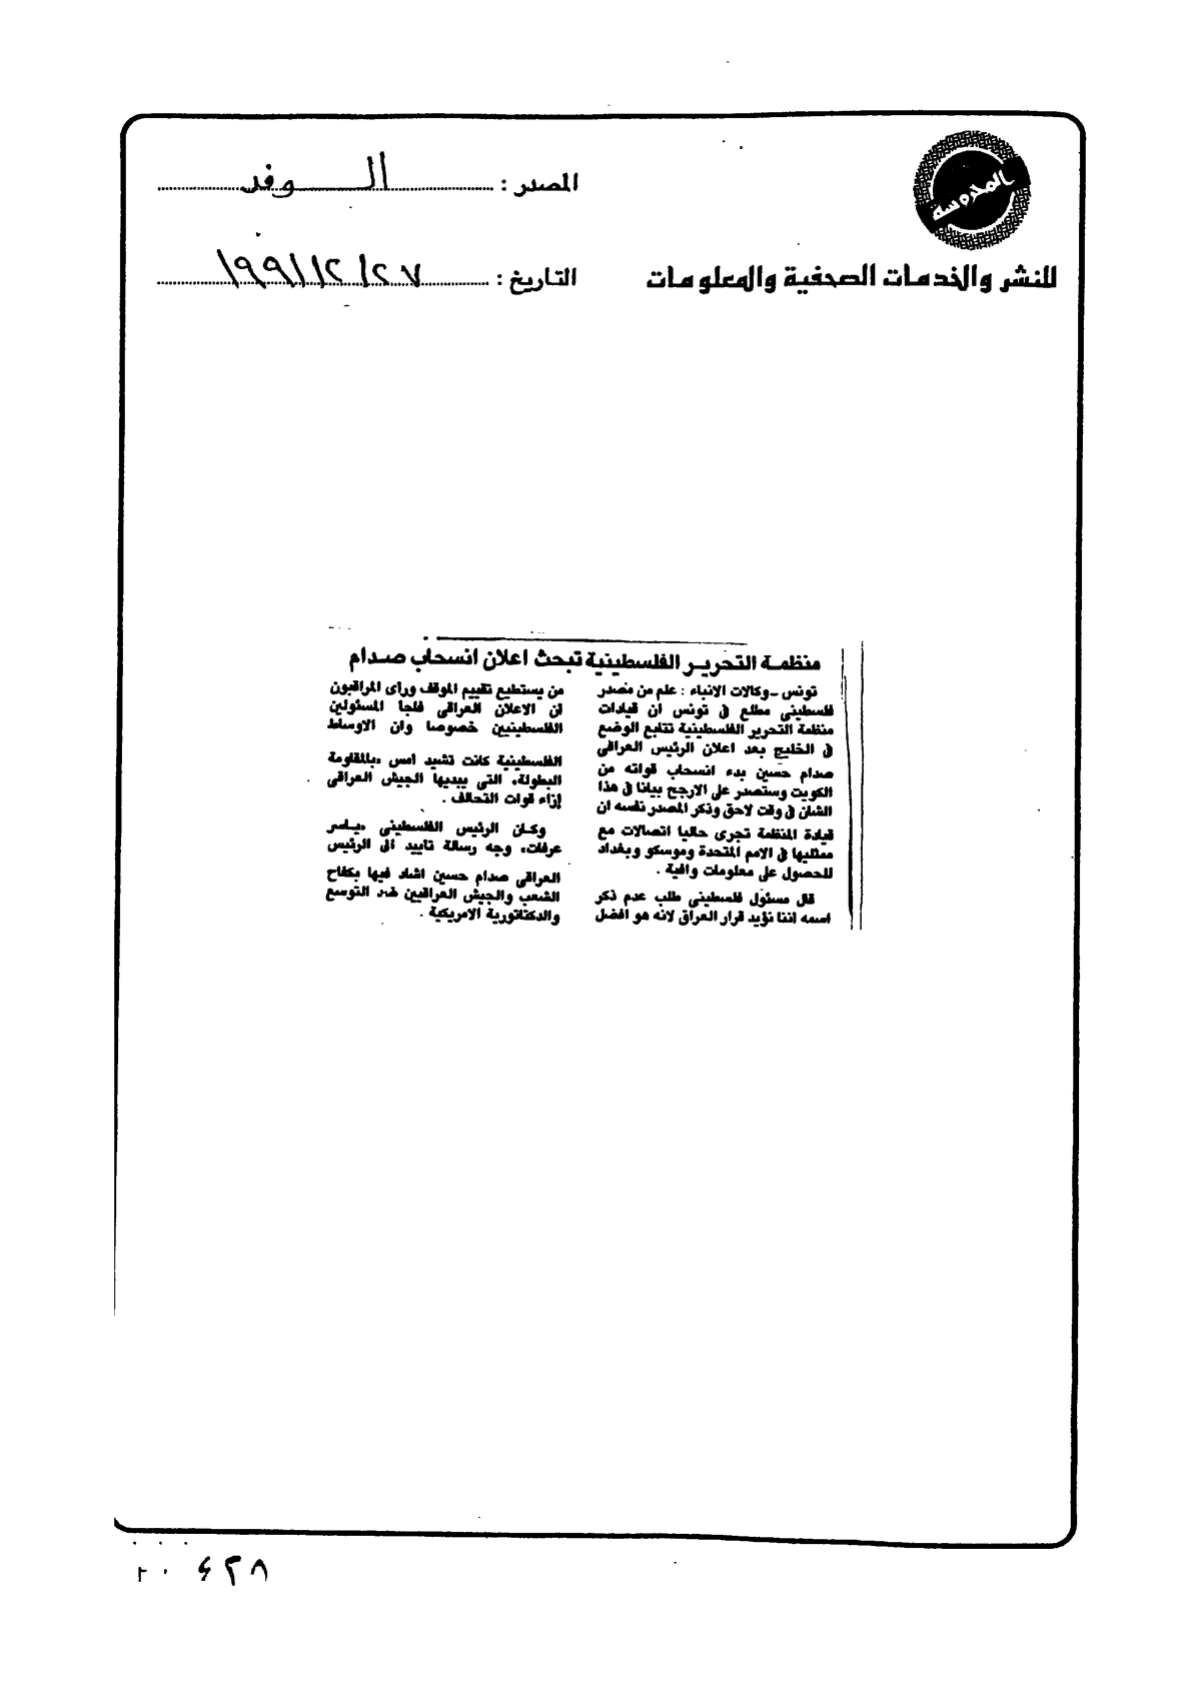 المحروسة
للنشر والخدمات الصحفية والمعلومات
المصدر : الوفد
التاريخ : ٢٧/٢/١٩٩١
منظمة التحرير الفلسطينية تبحث اعلان انسحاب صدام
تونس - وكالات الانباء : علم من مصدر
فلسطينى مطلع فى تونس ان قيادات
منظمة التحرير الفلسطينية تتابع الوضع
فى الخليج بعد اعلان الرئيس العراقى
صدام حسين بدء انسحاب قواته من
الكويت وستصدر على الارجح بيانا فى هذا
الشان فى وقت لاحق وذكر المصدر نفسه ان
قيادة المنظمة تجرى حاليا اتصالات مع
ممثليها فى الامم المتحدة وموسكو وبغداد
للحصول على معلومات وافية .
قال مسئول فلسطينى طلب عدم ذكر
اسمه اننا نؤيد قرار العراق لانه هو افضل
من يستطيع تقييم الموقف وراى المراقبون
ان الاعلان العراقى فاجا المسئولين
الفلسطينيين خصوصا وان الاوساط
الفلسطينية كانت تشيد امس «بالمقاومة
البطولة» التى يبديها الجيش العراقى
إزاء قوات التحالف .
وكان الرئيس الفلسطينى «ياسر
عرفات» وجه رسالة تاييد الى الرئيس
العراقى صدام حسين اشاد فيها بكفاح
الشعب والجيش العراقيين ضد التوسع
والدكتاتورية الامريكية .